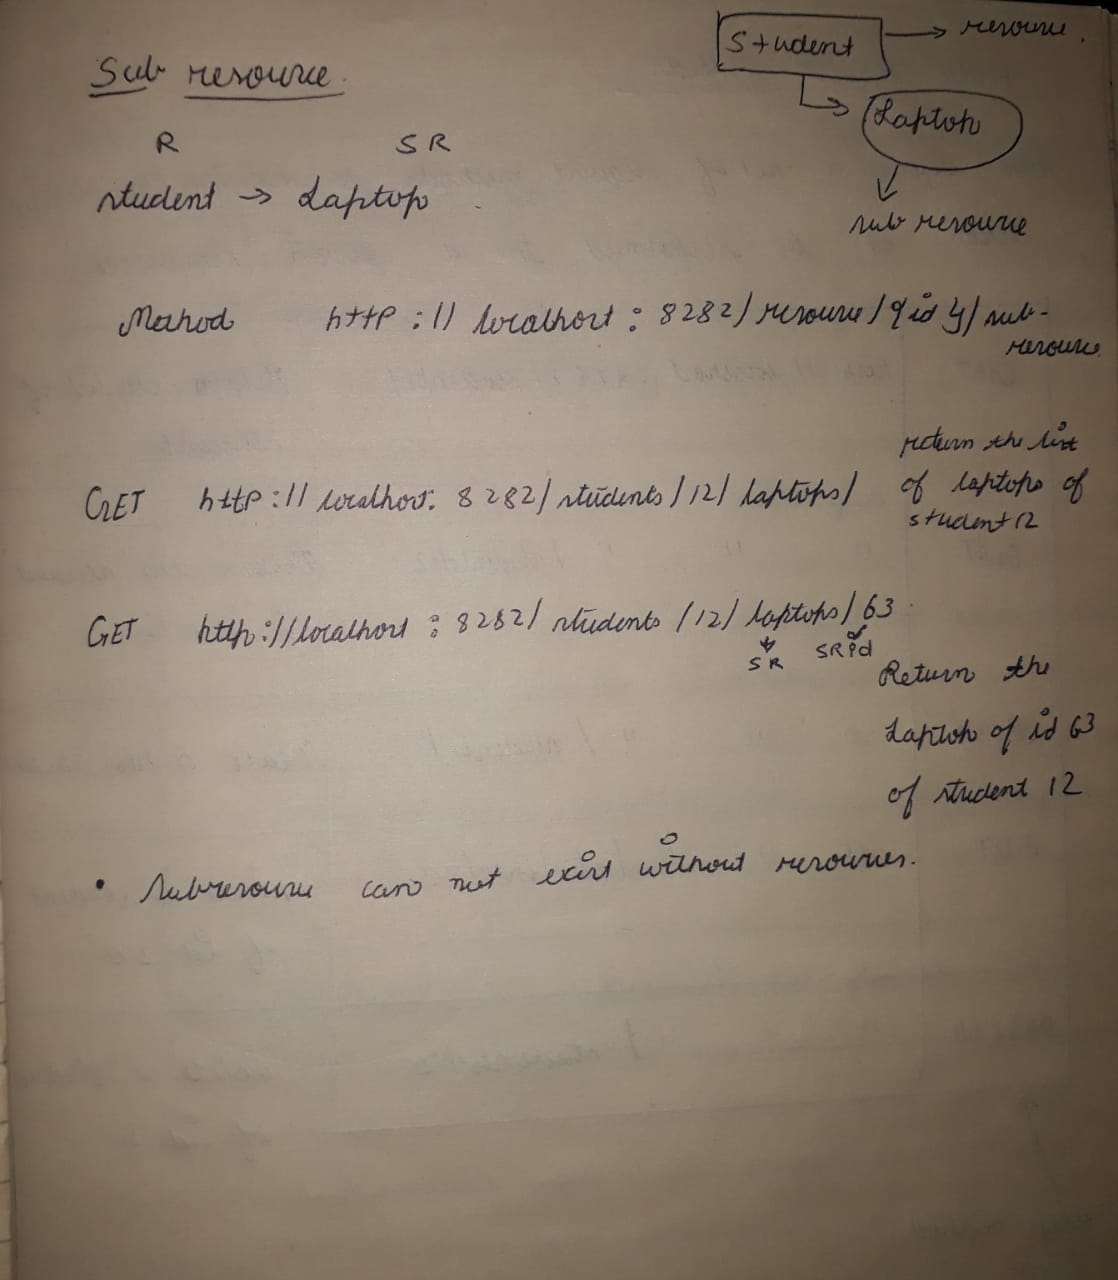 Sub resource.
Student → resource.
Laptop
sub resource
R SR
student → Laptop.
Method http://localhost:8282/resource/{id}/sub-
resource.
return the list
GET http://localhost:8282/students/12/laptops/ of laptops of
student 12
GET http://localhost:8282/students/12/laptops/63.
SR SR id
Return the
Laptop of id 63
of student 12
• Subresource can not exist without resources.